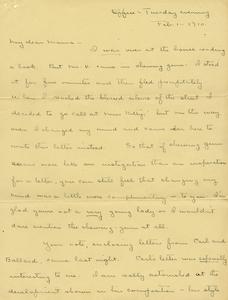 Office - Tuesday evening
Feb. 1 - 1910.
My dear Mama -
I was over at the house reading
a book that Mr. K. came in chewing gum. I stood
it for five minutes and then fled promptly
When I reached the blessed silence of the street I
decided to go call at Miss but on the way
over I changed my mind and came here to
write this letter instead. So that if chewing gum
seems more like an instigation than an inspiration
for a letter, you can still feel that changing my
mind was a little more complimentary to you. I'm
glad youre not a very young lady or I wouldn't
dare mention the chewing gum at all.
Your note, enclosing letters from Carl and
Ballard came last night. Carl's letter was especially
interesting to me. I am really astonished at the
development shown in his composition - his style